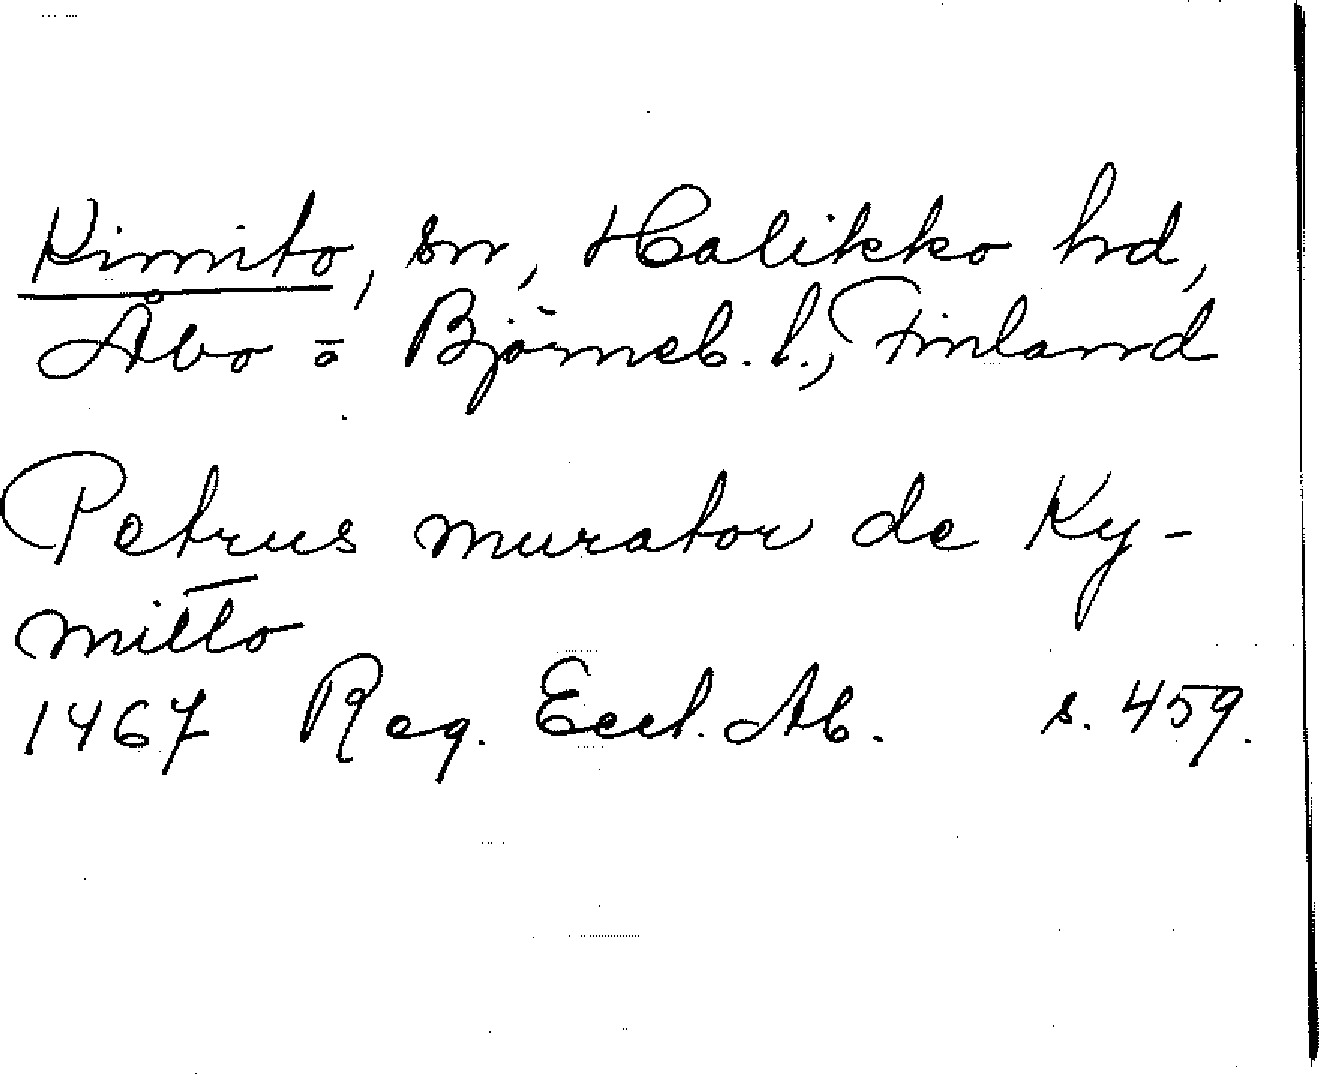 Kimito, sn, Halikko hd,
Åbo o Björneb. l., Finland
Petrus murator de Ky-
mitto
1467 Reg. Eccl. Ab. s. 459.